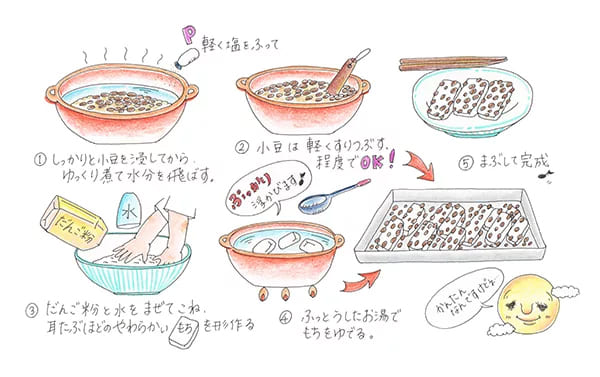 P 軽く塩をふって
① しっかりと小豆を浸してから
ゆっくり煮て水分を飛ばす。
② 小豆は軽くすりつぶす。
程度でOK!
③ だんご粉と水をまぜてこね、
耳たぶほどのやわらかい もち を形作る
だんご粉
水
④ ふっとうしたお湯で
もちをゆでる。
ぷっかり
浮かびます♪
⑤ まぶして完成
かんたん
なんですけどね